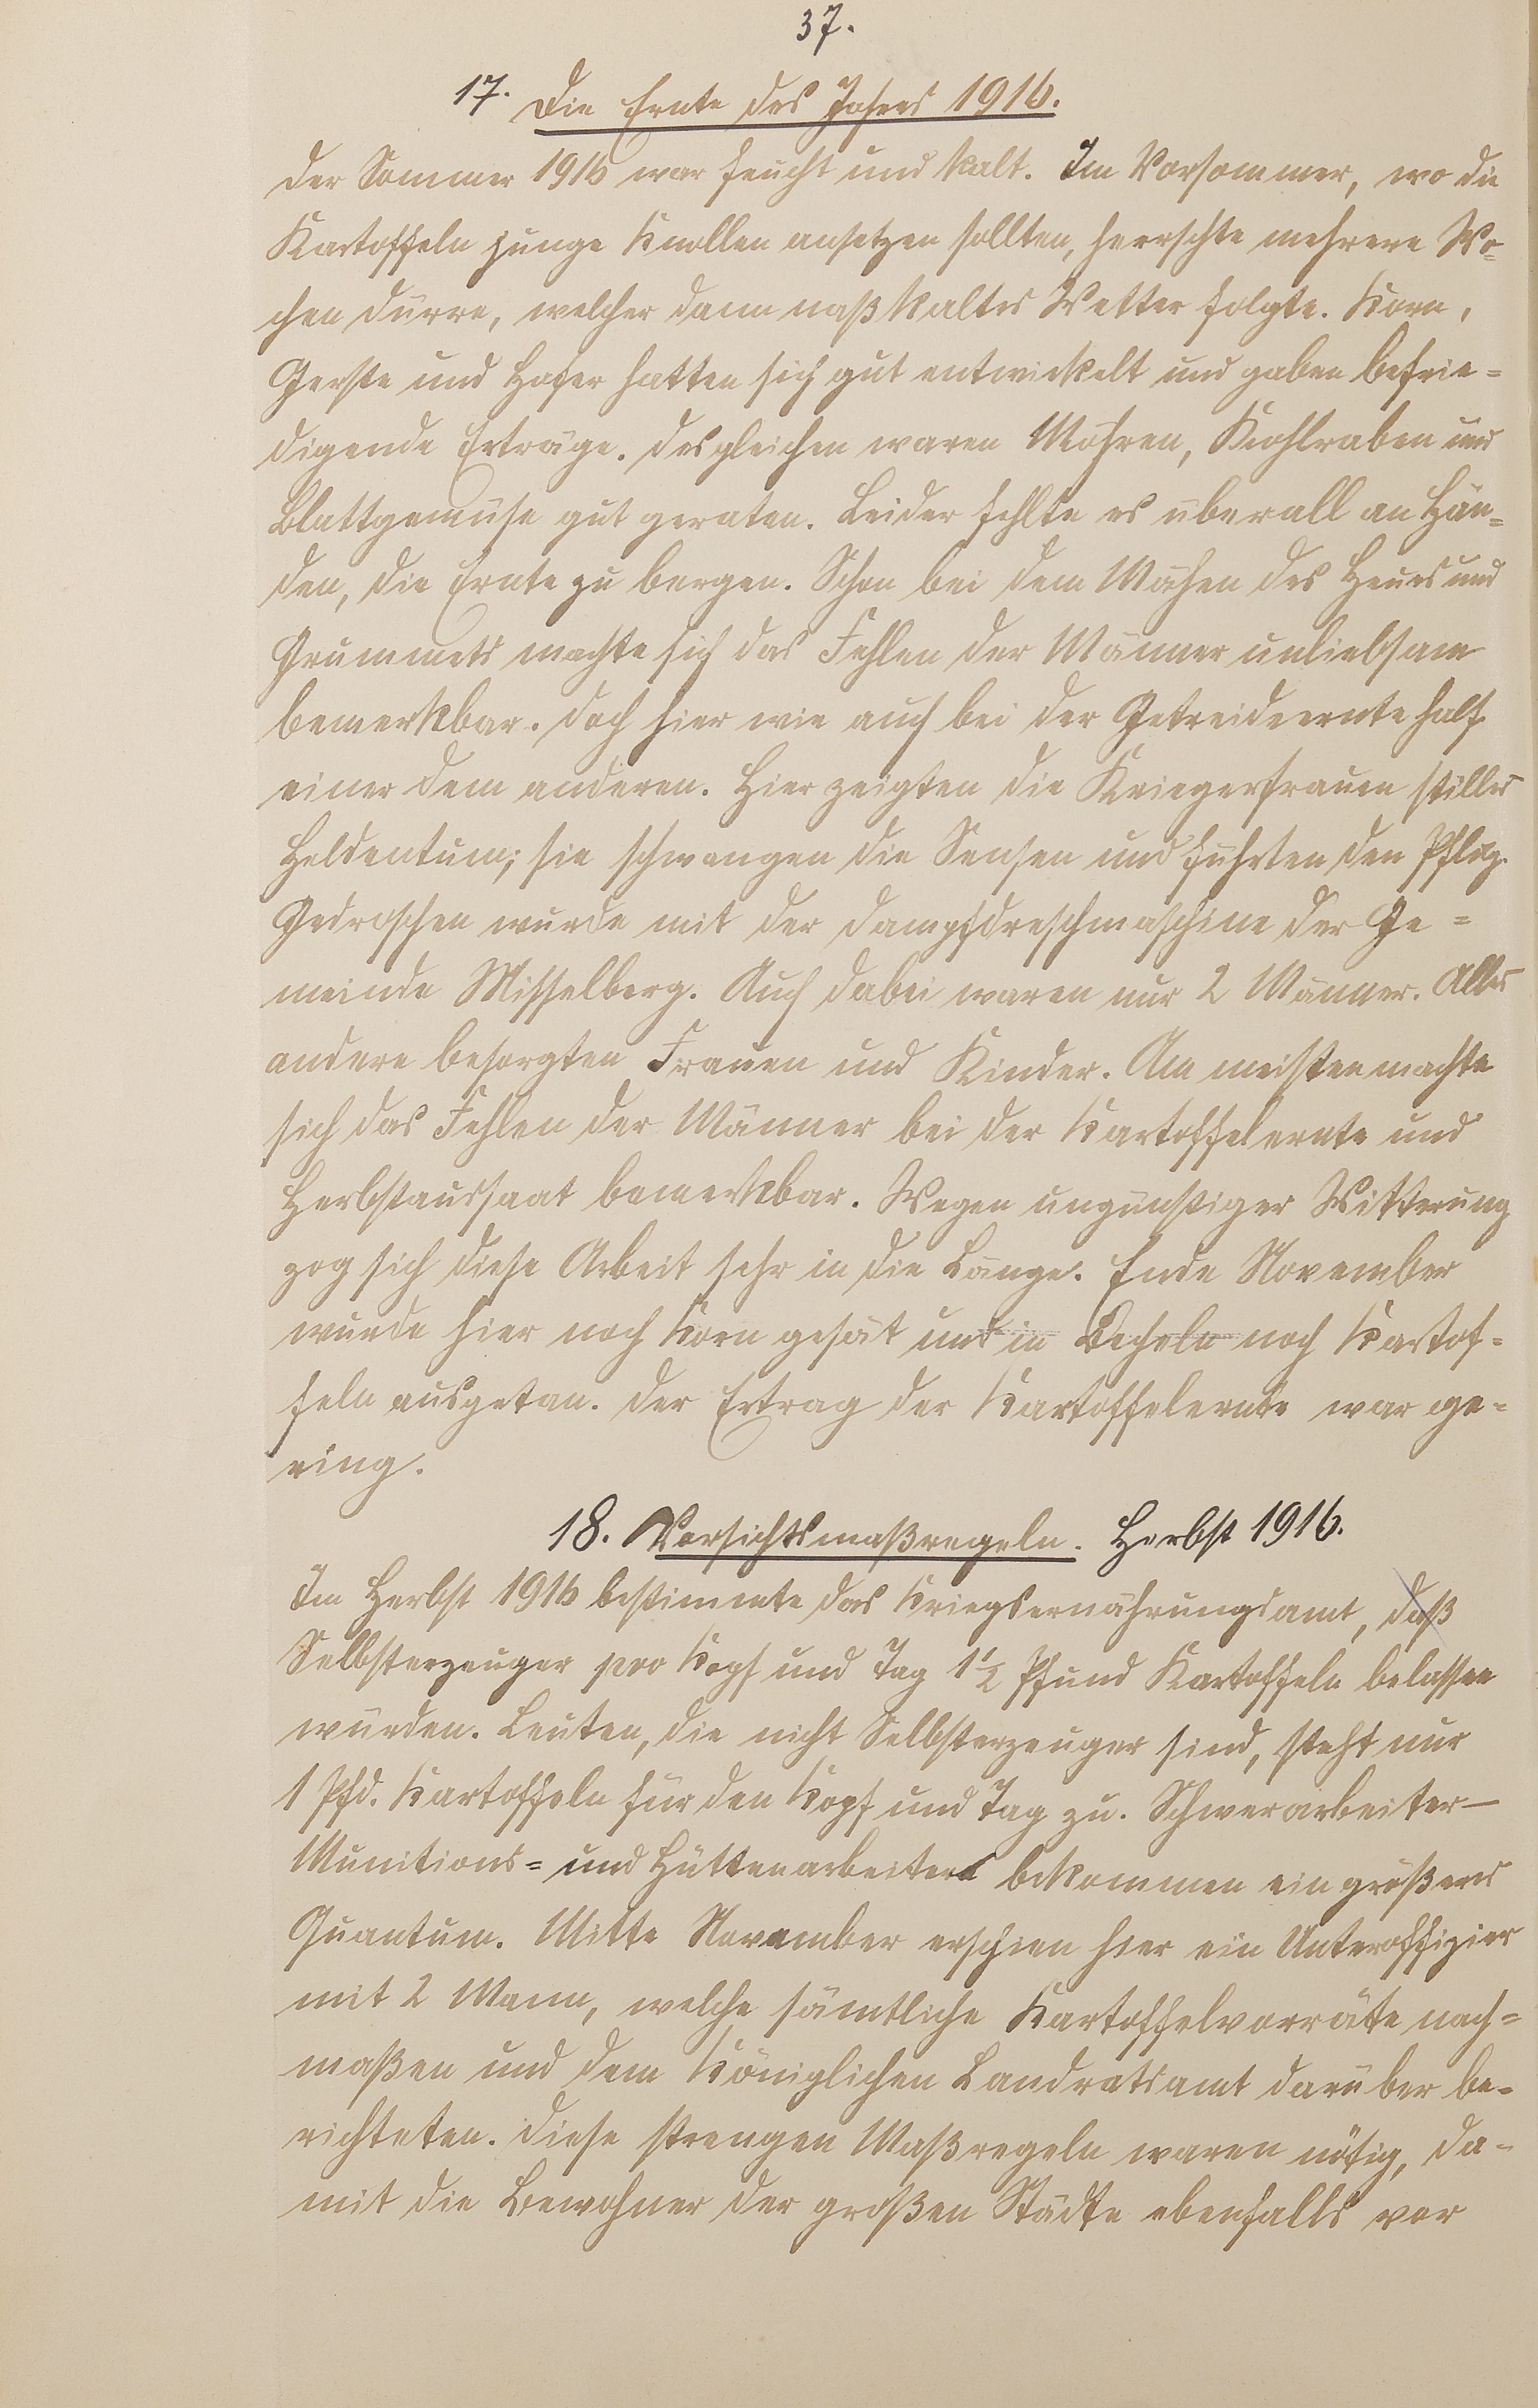 37.
17. Die Ernte des Jahres 1916.
Der Sommer 1916 war feucht und kalt. Im Vorsommer, wo die
Kartoffeln junge Knollen ansetzen sollten, herrschte mehrere Wo-
chen Dürre, welcher dann naßkaltes Wetter folgte. Korn,
Gerste und Hafer hatten sich gut entwickelt und gaben befrie=
digende Erträge. Desgleichen waren Möhren, Kohlraben und
Blattgemüse gut geraten. Leider fehlte es überall an Hän=
den, die Ernte zu bergen. Schon bei dem Mähen des Heues und
Grummets machte sich das Fehlen der Männer unliebsam
bemerkbar. Doch hier wie auch bei der Getreideernte half
einer dem anderen. Hier zeigten die Kriegerfrauen stilles
Heldentum; sie schwangen die Sensen und führten den Pflug.
Gedroschen wurde mit der Dampfdreschmaschine der Ge=
meinde Misselberg. Auch dabei waren nur 2 Männer. Alles
andere besorgten Frauen und Kinder. Am meisten machte
sich das Fehlen der Männer bei der Kartoffelernte und
Herbstaussaat bemerkbar. Wegen ungünstiger Witterung
zog sich diese Arbeit sehr in die Länge. Ende November
wurde hier noch Korn gesät und in Becheln noch Kartof=
feln ausgetan. Der Ertrag der Kartoffelernte war ge-
ring.
18. Vorsichtsmaßregeln. Herbst 1916.
Im Herbst 1916 bestimmte das Kriegsernährungsamt, daß
Selbsterzeuger pro Kopf und Tag 1½ Pfund Kartoffeln belassen
würden. Leuten, die nicht Selbsterzeuger sind, steht nur
1 Pfd. Kartoffeln für den Kopf und Tag zu. Schwerarbeiter—
Munitions= und Hüttenarbeiter bekommen ein größeres
Quantum. Mitte November erschien hier ein Unteroffizier
mit 2 Mann, welche sämtliche Kartoffelvorräte nach=
maßen und dem Königlichen Landratsamt darüber be-
richteten. Diese strengen Maßregeln waren nötig, da-
mit die Bewohner der großen Städte ebenfalls vor